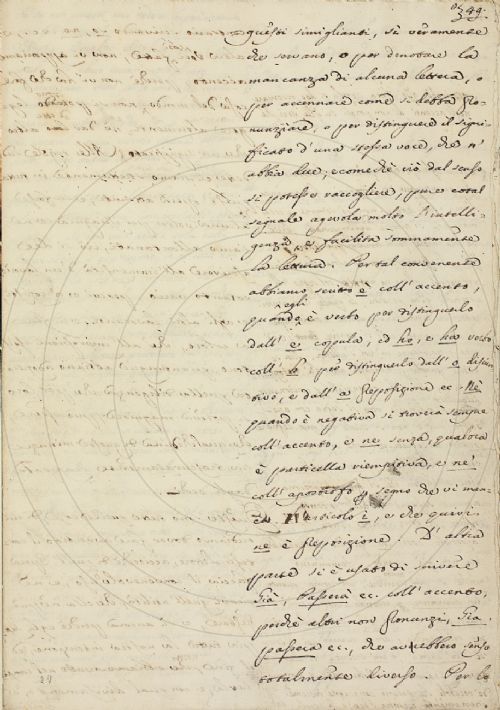 349.
questi simiglianti, sì veramente
che servano, o per denotare la
mancanza di alcuna lettera, o
per accennare come si debba pro-
nunziare, o per distinguere il signi-
ficato d'una stessa voce, che n'
abbia due; e comechè ciò dal senso
si potesse raccogliere, pure cotal
segnale agevola molto l'intelli-
genza, e facilita sommamente
la lettura. Per tal convenente
abbiamo scritto è coll'accento,
quando egli è verbo per distinguerlo
dall' e copula, ed ho, e ha verbo
coll' h per distinguerlo dall' o disiun-
tivo, e dall' a preposizione ec. Nè
quando è negativa si troverà sempre
coll'accento, e ne senza, qualora
è particella riempitiva, e ne'
coll'apostrofo segno che vi man-
ca l'articolo i, e che quivi
ne è preposizione. D'altra
parte si è usato di scrivere
Già, passerà ec. coll'accento,
perchè altri non pronunzi, Gia
passera ec., che avrebbero senso
totalmente diverso. Per lo